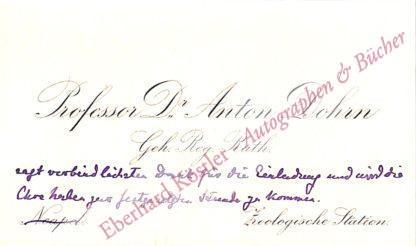 Professor Dr Anton Dohrn
Geh. Reg. Rath.
sagt verbindlichsten Dank für die Einladung und wird die
Ehre haben zur festgesetzten Stunde zu kommen.
Neapel. Zoologische Station.
Eberhard Köstler - Autographen & Bücher